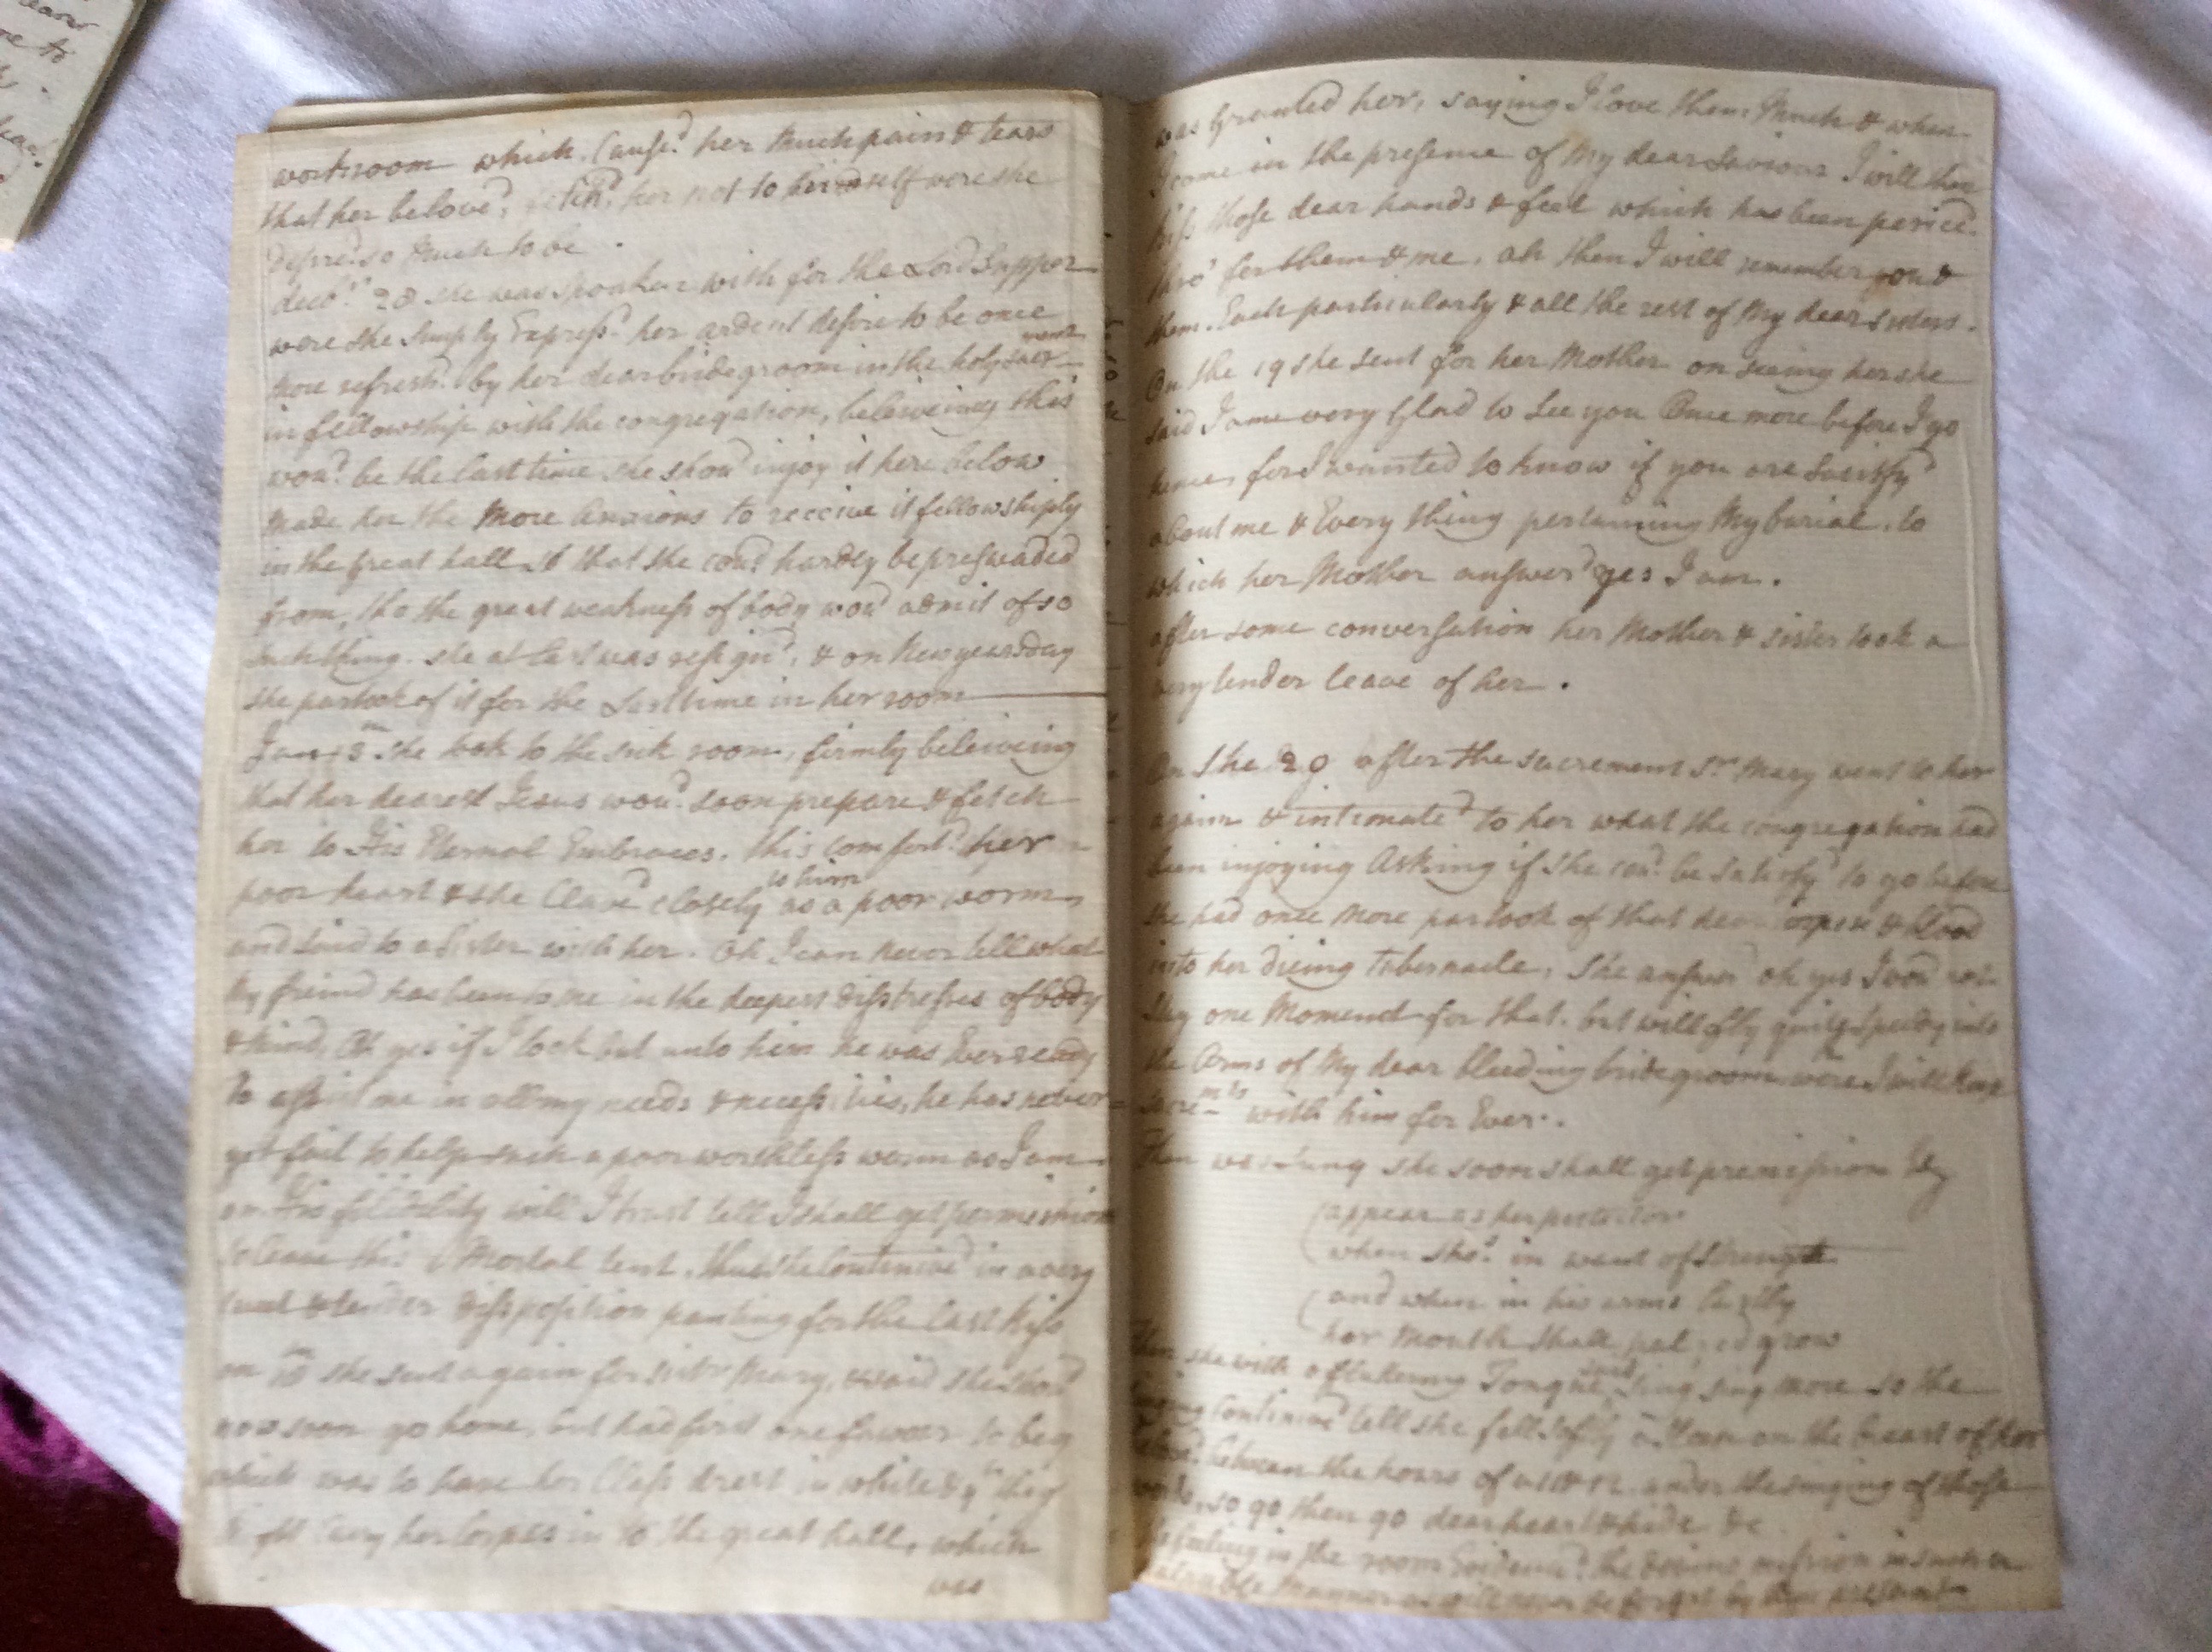 workroom which Caus'd her Much pain & tears
that her belov'd, her not to himself were she
desire'd so Much to be.
decbr 28 she was spoaken with for the Lord Supper
were she simply Express'd her ardent desire to be once
More refresh'd by her dear bridegroom in the holy sacrement
in fellowship with the congregation, beleiveing this
wou'd be the last time she shou'd injoy it here below
Made her the More Anxious to receive it fellowshiply
in the great hall, that she cou'd hardly be preswaded
from, tho the great weakness of body wou'd admit of so
such thing. she at last was resign'd, & on Newyearsday
she partook of it for the last time in her room
Jan 3 she took to the sick room, firmly beleiveing
that her dearest Jesus wou'd soon prepare & fetch
her to His Eternal Embraces. this comfort'd her
poor heart & she Clave closely to him as a poor worm
and said to a Sister with her. Oh I can never tell what
My friend has been to me in the deepest disstresses of body
& Mind, Oh yes if I look but unto him he was Ever ready
To assist me in all my needs & necessities, he has never
yet fail to help such a poor worthless worm as I am
on His fidelity will I trust tell I shall get permission
to leave this Mortal tent. thus she Continued in a very
sweet & tender disposition panting for the last kiss
on she sent again for sistr Mary, & said she shou'd
now soon go home, but had first one favour to beg
which was to have her Class drest in white & yt they
Carry her Corpes in to the great hall, which
was
was Granted her, saying I love them Much & when
I come in the presence of My dear Saviour I will then
kiss those dear hands & feet which has been perice'd
thro' for them & me, ah then I will remember you &
them Each particularly & all the rest of My dear sisters.
On the 19 she sent for her Mother on seeing her she
said I ame very Glad to See you Once more before I go
home, for I wanted to know if you are Satisfy'd
about me & Every thing pertaining My burial, to
which her Mother answer'd yes I am.
after some conversation her Mother & sister took a
very tender leave of her.
On the 20 after the sacrement Sr Mary went to her
again & intimate'd to her what the congregation had
been injoying Asking if she cou'd be satisfy'd to go before
she had once More partook of that dear corpse & blood
into her dieing tabernacle, She answer'd oh yes I wou'd not
stay one Moment for that. but will fly quite speedy into
the Arms of My dear bleeding bridegroom were I will keep
with him for Ever.
Then was sung she soon shall get premission
appear as her protector
when She's in want of Strength
and when in his arms
her Mouth shall grow
she with a flutering Tongue said, sing sing More so the
singing Continued tell she fell softly on the breast of her
between the hours of under the singing of those
words, so go then go dear heart & hide &c
feeling in the room Evidence'd the in such a
Manner as will never be forgot by those present